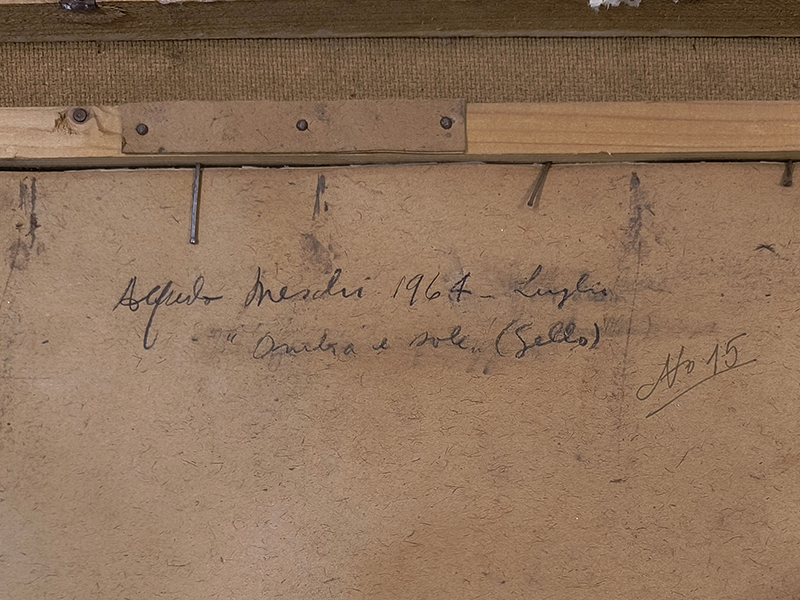 Alfredo Meschi 1964 - Luglio
"Ombra e sole" (Gello)
No 15